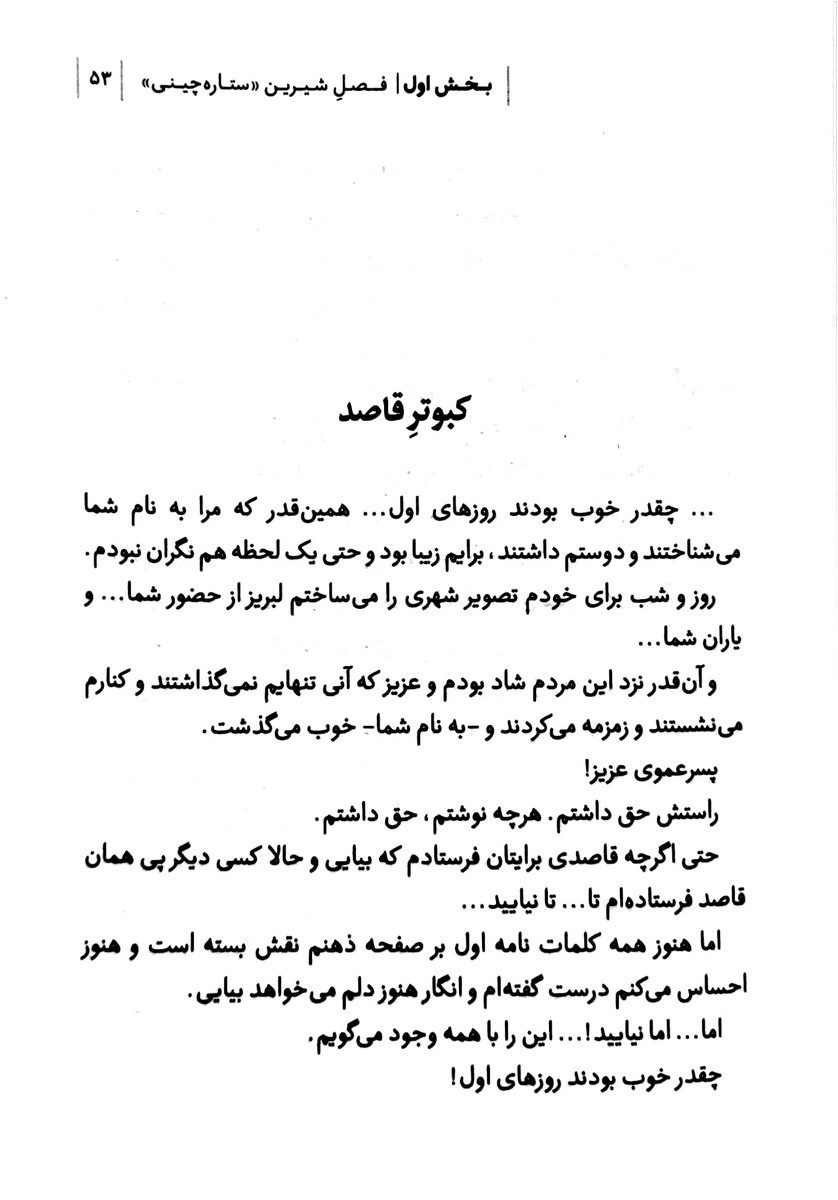 بخش اول | فصلِ شیرین «ستاره‌چینی» | ۵۳
کبوترِ قاصد
... چقدر خوب بودند روزهای اول... همین‌قدر که مرا به نام شما
می‌شناختند و دوستم داشتند، برایم زیبا بود و حتی یک لحظه هم نگران نبودم.
روز و شب برای خودم تصویر شهری را می‌ساختم لبریز از حضور شما... و
یاران شما...
و آن‌قدر نزد این مردم شاد بودم و عزیز که آنی تنهایم نمی‌گذاشتند و کنارم
می‌نشستند و زمزمه می‌کردند و -به نام شما- خوب می‌گذشت.
پسرعموی عزیز!
راستش حق داشتم. هرچه نوشتم، حق داشتم.
حتی اگرچه قاصدی برایتان فرستادم که بیایی و حالا کسی دیگر پی همان
قاصد فرستاده‌ام تا... تا نیایید...
اما هنوز همه کلمات نامه اول بر صفحه ذهنم نقش بسته است و هنوز
احساس می‌کنم درست گفته‌ام و انگار هنوز دلم می‌خواهد بیایی.
اما... اما نیایید!... این را با همه وجود می‌گویم.
چقدر خوب بودند روزهای اول!